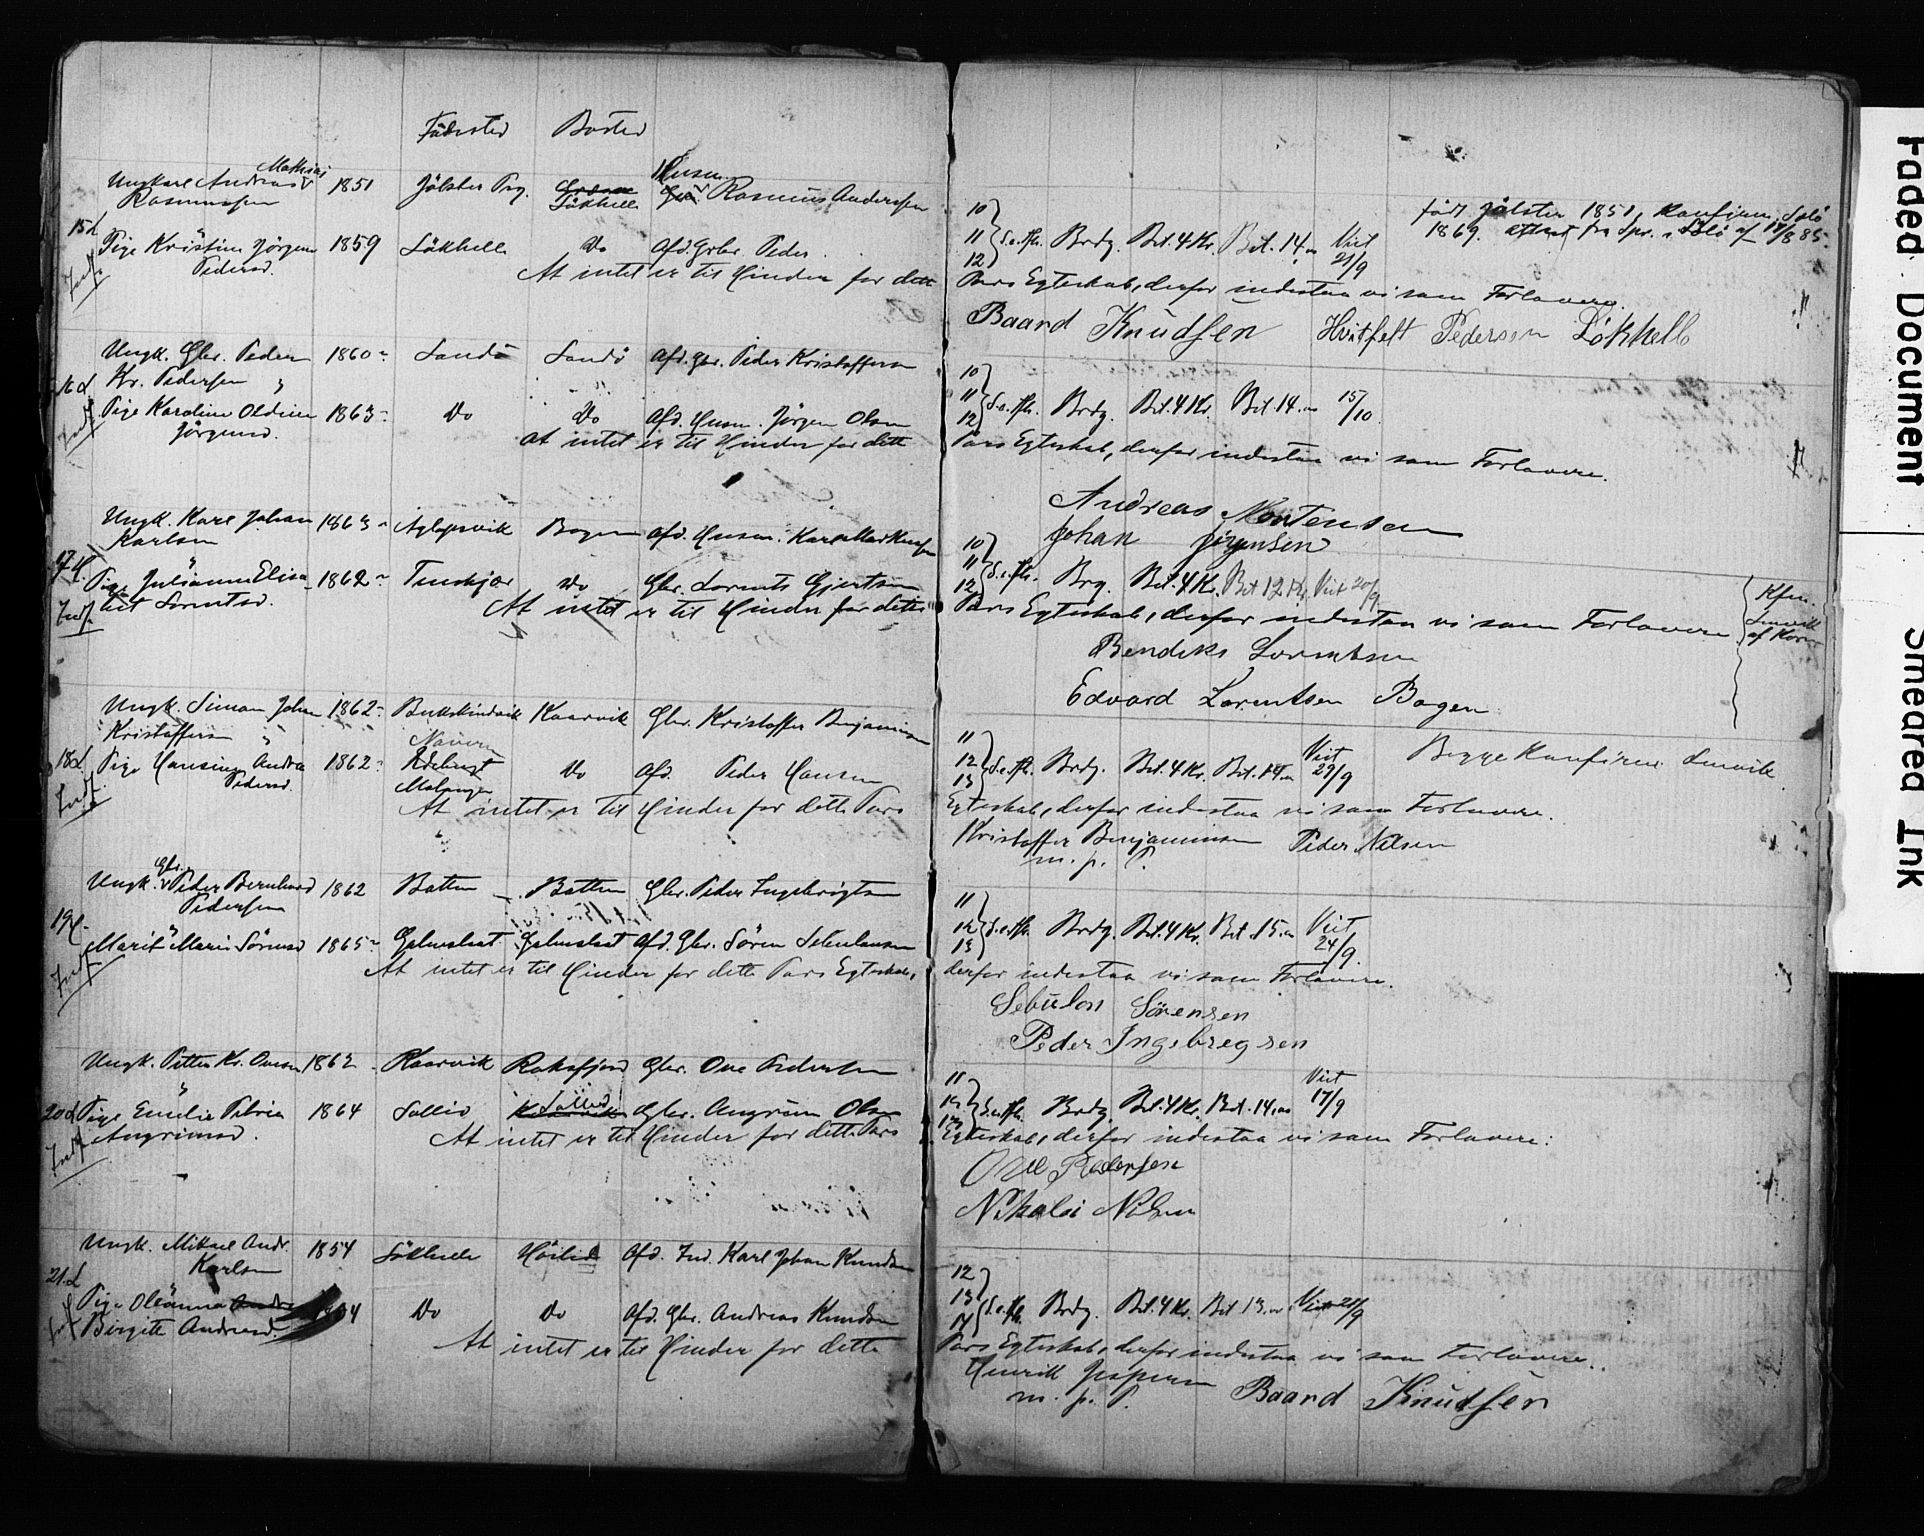 Fødested Bosted
Mathias
Ungkarl Andreas 1851 Jölster Prg. Løkhelle Husm. Rasmus Andersen
Rasmussen
15 L
Pige Kristine Jörgine 1859 Løkhelle Do Afd. Gbr. Peder
Pedersd.
Indf.
At intet er til Hinder for dette
Ungk. Gbr. Peder 1860 Sandö Sandö Afd. Gbr. Peder Kristoffersen
Kr. Pedersen
16 L
Pige Karoline Oldine 1863 Do Do Afd. Husm. Jörgen Olsen
Jörgensd.
Indf.
at intet er til Hinder for dette
Ungk. Karl Johan 1863 Aglapsvik Bogen Afd. Husm. Karl
Karlsen
17
Pige Julianne Elisa- 1862 Tennskjær Do Gbr. Lorents Gjertsen
bet Lorentsd.
Indf.
At intet er til Hinder for dette
Ungk. Simon Johan 1862 Bukskindvik Kaarvik Gbr. Kristoffer Benjaminsen
Kristoffersen
18 L
Pige Hansine Andrea 1862 Do Afd. Peder Hansen
Pedersd. Malangen
Indf.
At intet er til Hinder for dette Pars
Gbr.
Ungk. Peder Bernhard 1862 Botten Botten Gbr. Peder Ingebrigtsen
Pedersen
19
Marit Marie Sörensd 1865 Gjelmslaat Gjelmslaat Afd. Gbr. Sören Sebulonsen
Indf.
At intet er til Hinder for dette Pars Egteskab,
Ungk. Petter Kr. Ovesen 1862 Kaarvik Rakafjord Gbr. Ove Pedersen
20 L Pige Emelie Petrea 1864 Sollid Sollid Gbr. Angrim Olsen
Angrimsd.
Indf.
At intet er til Hinder for dette Pars
Ungk. Mikael Andr. 1854 Løkhelle Höilid Afd. Ind. Karl Johan Knudsen
Karlsen
21 L
Pige Oleanna Andr 1864 Do Do Afd. Gbr. Andreas Knudsen
Birgitte Andreasd.
At intet er til Hinder for dette
født Jölster 1851, konfirm. Solö
1869. attest fra Spr. i Solö af 17/8 85.
10
11 S. e. Tr. Brdg. Bet. 4 Kr. Bet. 14.00 Viet
12 21/9
Pars Egteskab, derfor indestaa vi som Forlovere.
Baard Knudsen Hvitfelt Pederson Lökhelle
10
11 S. e. Tr. Brdg. Bet. 4 Kr. Bet. 14.00 15/10
12
Pars Egteskab, derfor indestaa vi som Forlovere.
Andreas Mortensen
Johan Jørgensen
10
11 S. e. Tr. Brg. Bet. 4 Kr. Bet 12 Kr. Viet 20/9
12
Kfm.
Lenvik
af
Pars Egteskab, derfor indestaa vi som Forlovere
Bendiks Lorentsen
Edvard Lorentsen Bogen
11
12 S. e. Tr. Brdg. Bet. 4 Kr. Bet. 14.00 Viet Begge Konfirm. Lenvik
13 29/9
Egteskab, derfor indestaa vi som Forlovere.
Kristoffer Benjaminsen Peder Nilsen
m. p. P.
11
12 S. e. Tr. Brdg. Bet. 4 Kr. Bet. 15.00 Viet
13 24/9
derfor indestaa vi som Forlovere.
Sebulon Sørensen
Peder Ingebregsen
11 Viet
12 S. e. Tr. Brdg Bet. 4 Kr. Bet. 14.00 17/9
13
Egteskab, derfor indestaa vi som Forlovere:
Ove Pedersen
Nikolai Nilsen
12
13 S. e. Tr. Brdg. Bet. 4 Kr. Bet 13.00 Viet 21/9
14
Pars Egteskab, derfor indestaa vi som Forlovere.
Henrik Jespersen Baard Knudsen
m. p. P.
Faded Document
Smeared Ink